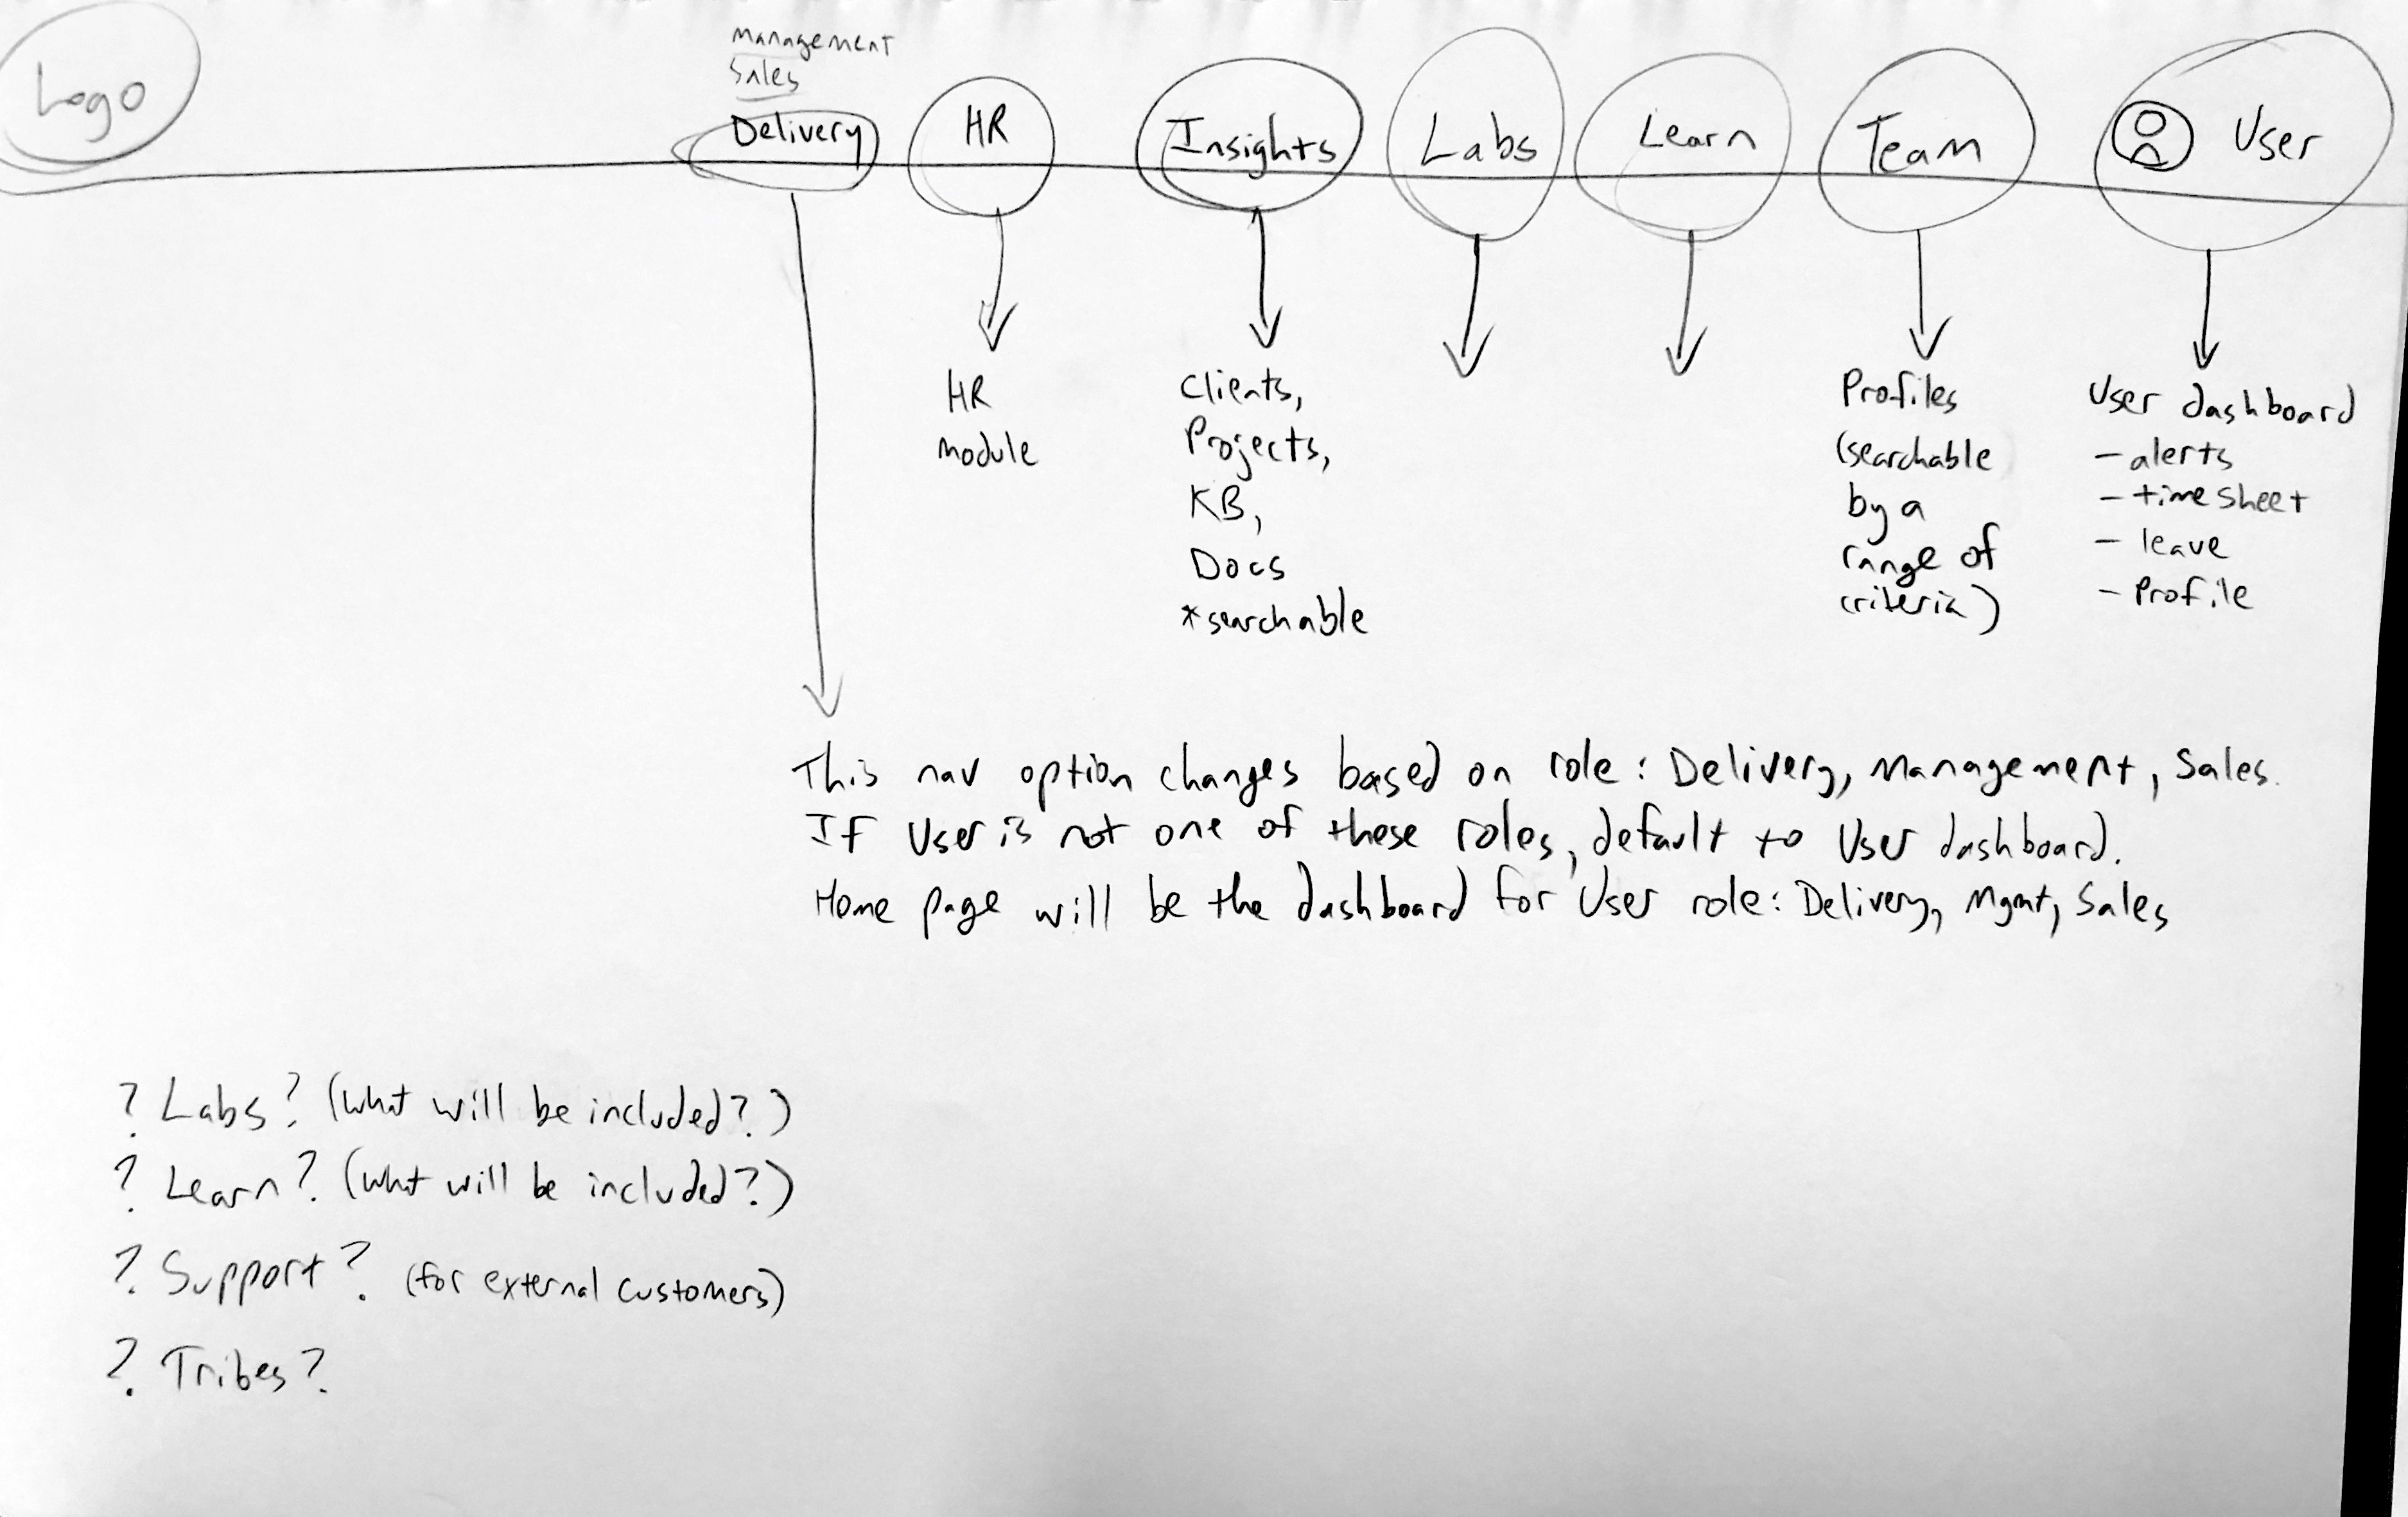 Logo
Management
Sales
Delivery
HR
Insights
Labs
Learn
Team
User
HR
module
Clients,
Projects,
KB,
Docs
*searchable
Profiles
(searchable
by a
range of
criteria)
User dashboard
- alerts
- timesheet
- leave
- Profile
This nav option changes based on role: Delivery, Management, Sales.
If User is not one of these roles, default to User dashboard.
Home page will be the dashboard for User role: Delivery, Mgmt, Sales
? Labs? (what will be included?)
? Learn? (what will be included?)
? Support? (for external customers)
? Tribes?